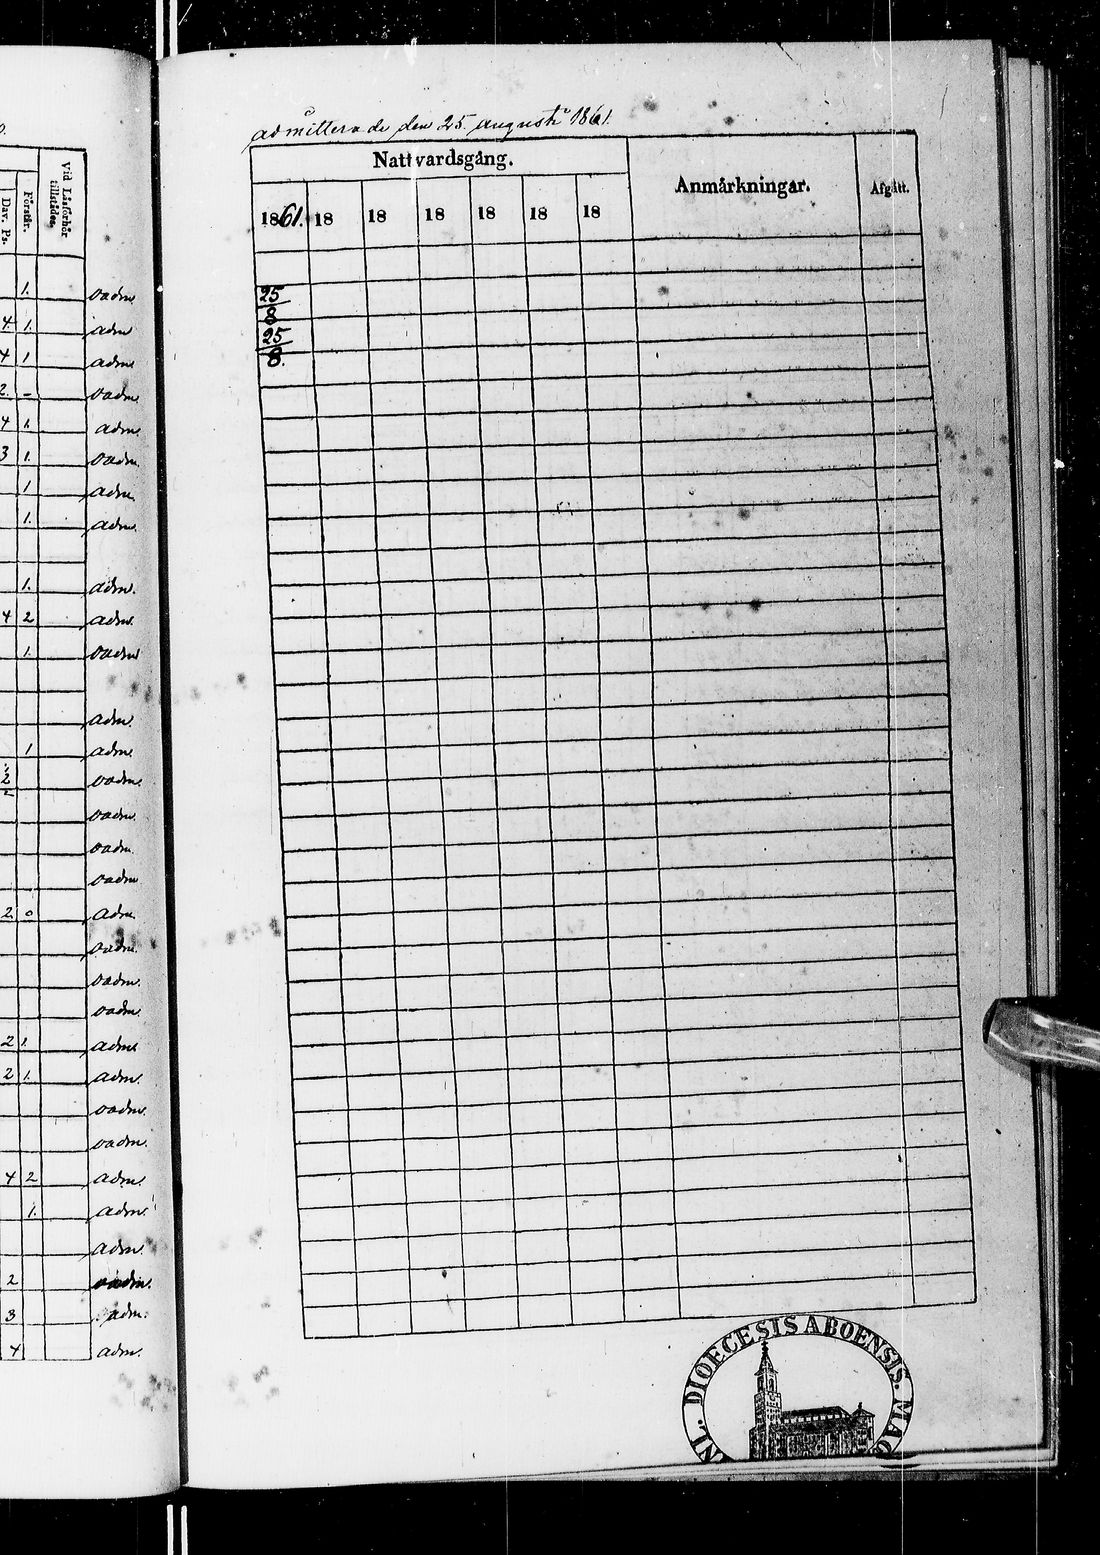 Vid Läsförhör
tillstådes.
Förstår.
Dav. Ps.
1. oadm
4. 1. adm
4 1 adm
2. – oadm.
4 1. adm.
3 1. oadm.
1 adm.
1. adm.
1. adm.
4 2 adm.
1. oadm
adm.
1 adm.
2 oadm.
oadm.
oadm.
oadm
2 0 adm
oadm.
oadm.
oadm.
2 1. adm
2 1. adm.
oadm.
oadm.
4 2 adm.
1. adm.
adm.
2 oadm.
3 adm.
4 adm.
admitterade den 25. augusti 1861.
Nattvardsgång.
Anmärkningar.
Afgått.
1861. 18 18 18 18 18 18
25
8
25
8.
NL. DIOECESIS ABOENSIS. MAG